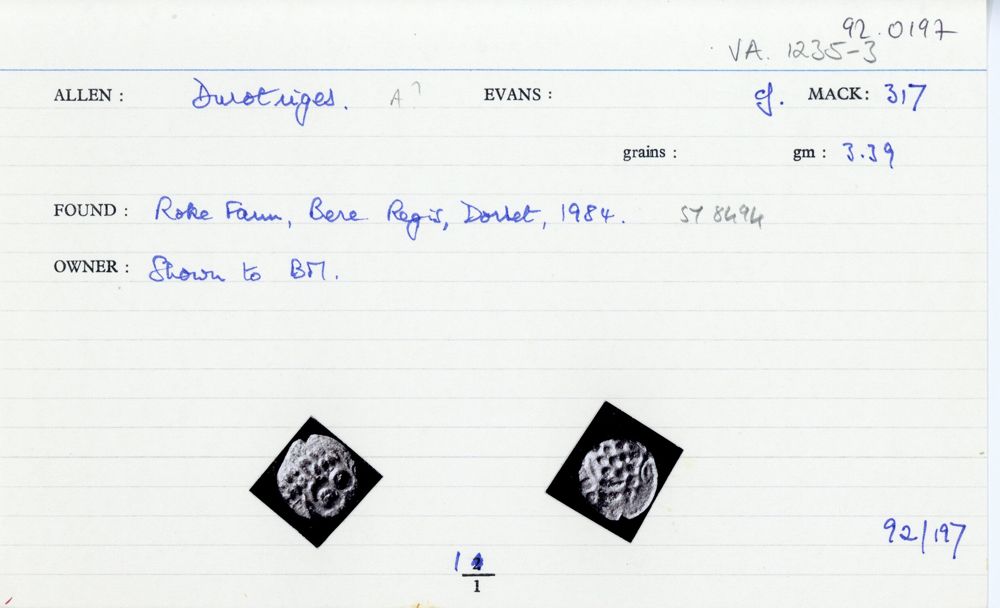 92.0197
VA. 1235-3
ALLEN : Durotriges. A? EVANS : cf. MACK: 317
grains : gm : 3.39
FOUND : Roke Farm, Bere Regis, Dorset, 1984. SY 8494
OWNER : Shown to BM.
92/197
1
1